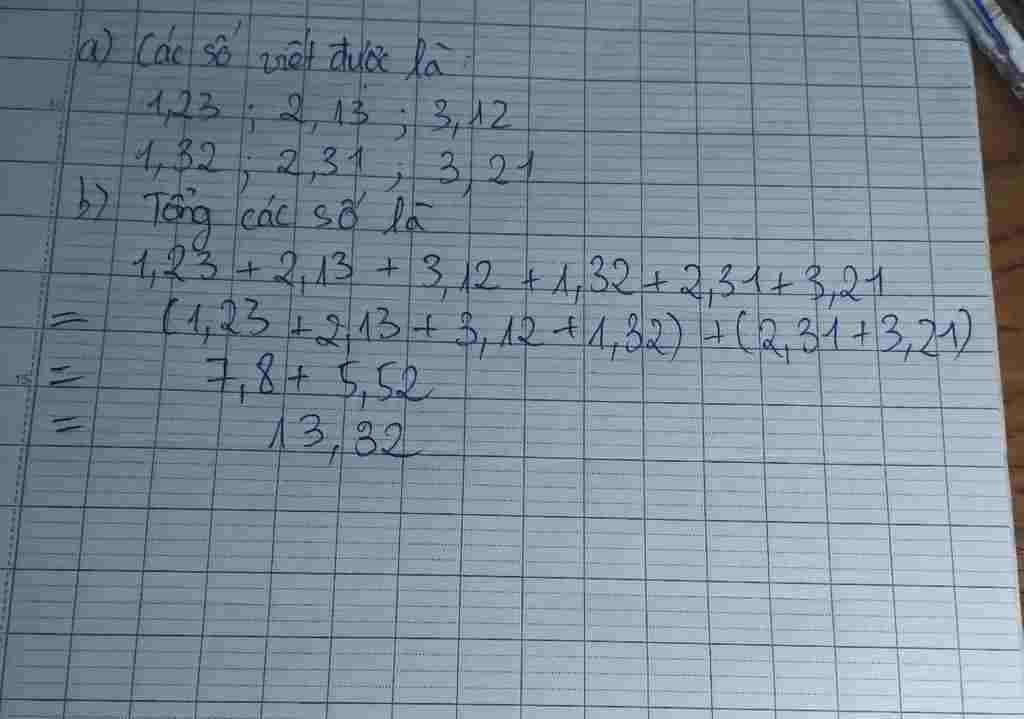 a) Các số viết được là:
1,23 ; 2,13 ; 3,12
1,32 ; 2,31 ; 3,21
b) Tổng các số là
1,23 + 2,13 + 3,12 + 1,32 + 2,31 + 3,21
= (1,23 + 2,13 + 3,12 + 1,32) + (2,31 + 3,21)
= 7,8 + 5,52
= 13,32